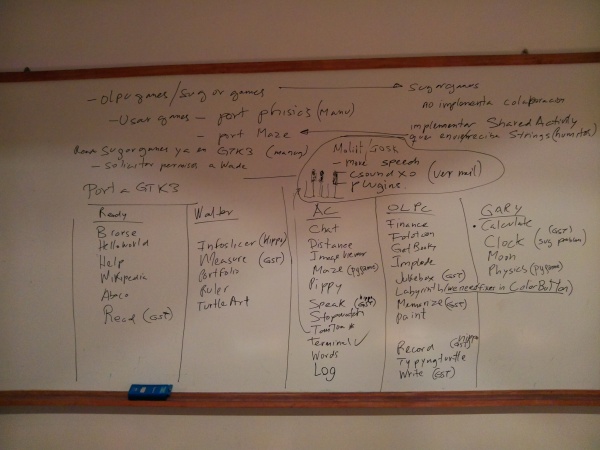 - olpcgames/Sugargames → sugargames
no implementa colaboracion
- Usar games - port phisics (Manu)
implementar SharedActivity
- port Maze
que envie/reciba Strings (humitos)
sugargames ya en GTK3 (manuq)
- solicitar permisos a Wade
- more speech
- csound xo (ver mail)
- plugins.
Port a GTK3
Ready
Browse
HelloWorld
Help
Wikipedia
Abaco
Read (GST)
Walter
Infoslicer (Hippy)
Measure (GST)
Portfolio
Ruler
TurtleArt
AC
Chat
Distance
Maze (pygame)
Pippy
Speak (GST)
Stopwatch
TamTam *
Terminal ✓
Words
Log
OLPC
Finance
FotoToon
GetBooks
Implode
Jukebox (GST)
Labyrinth (we need fixes in ColorButton)
Memorize (GST)
paint
Record (GST) Hippo
Typingturtle
Write (GST)
GARY
• Calculate
Clock (GST)
(svg problem)
Moon
Physics (pygame)